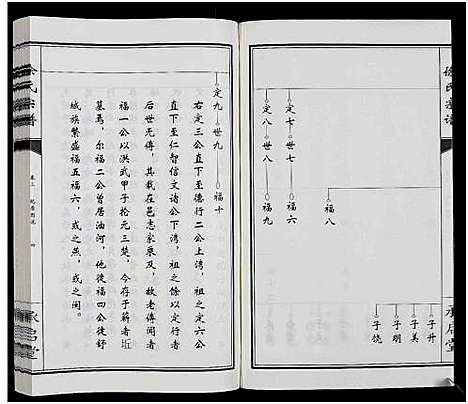 徐氏宗谱
福八
子升
子美
子明
子饶
定七 世七 福六
定八 世八 福九
承启堂
定九 世九 福十
右定三公直下至德行二公上湾，祖之定六公
直下至仁智信文诸公下湾，祖之馀以定行者
后世无传，其载在邑志家乘及，故老传闻者
福一公以洪武甲子拾元三楚，今存于蕲者坵
墓焉，尔福二公曾居油河，他徙福四公徙舒
城族繁盛福五福六，或之燕，或之闽。
徐氏宗谱
卷三
四
承启堂